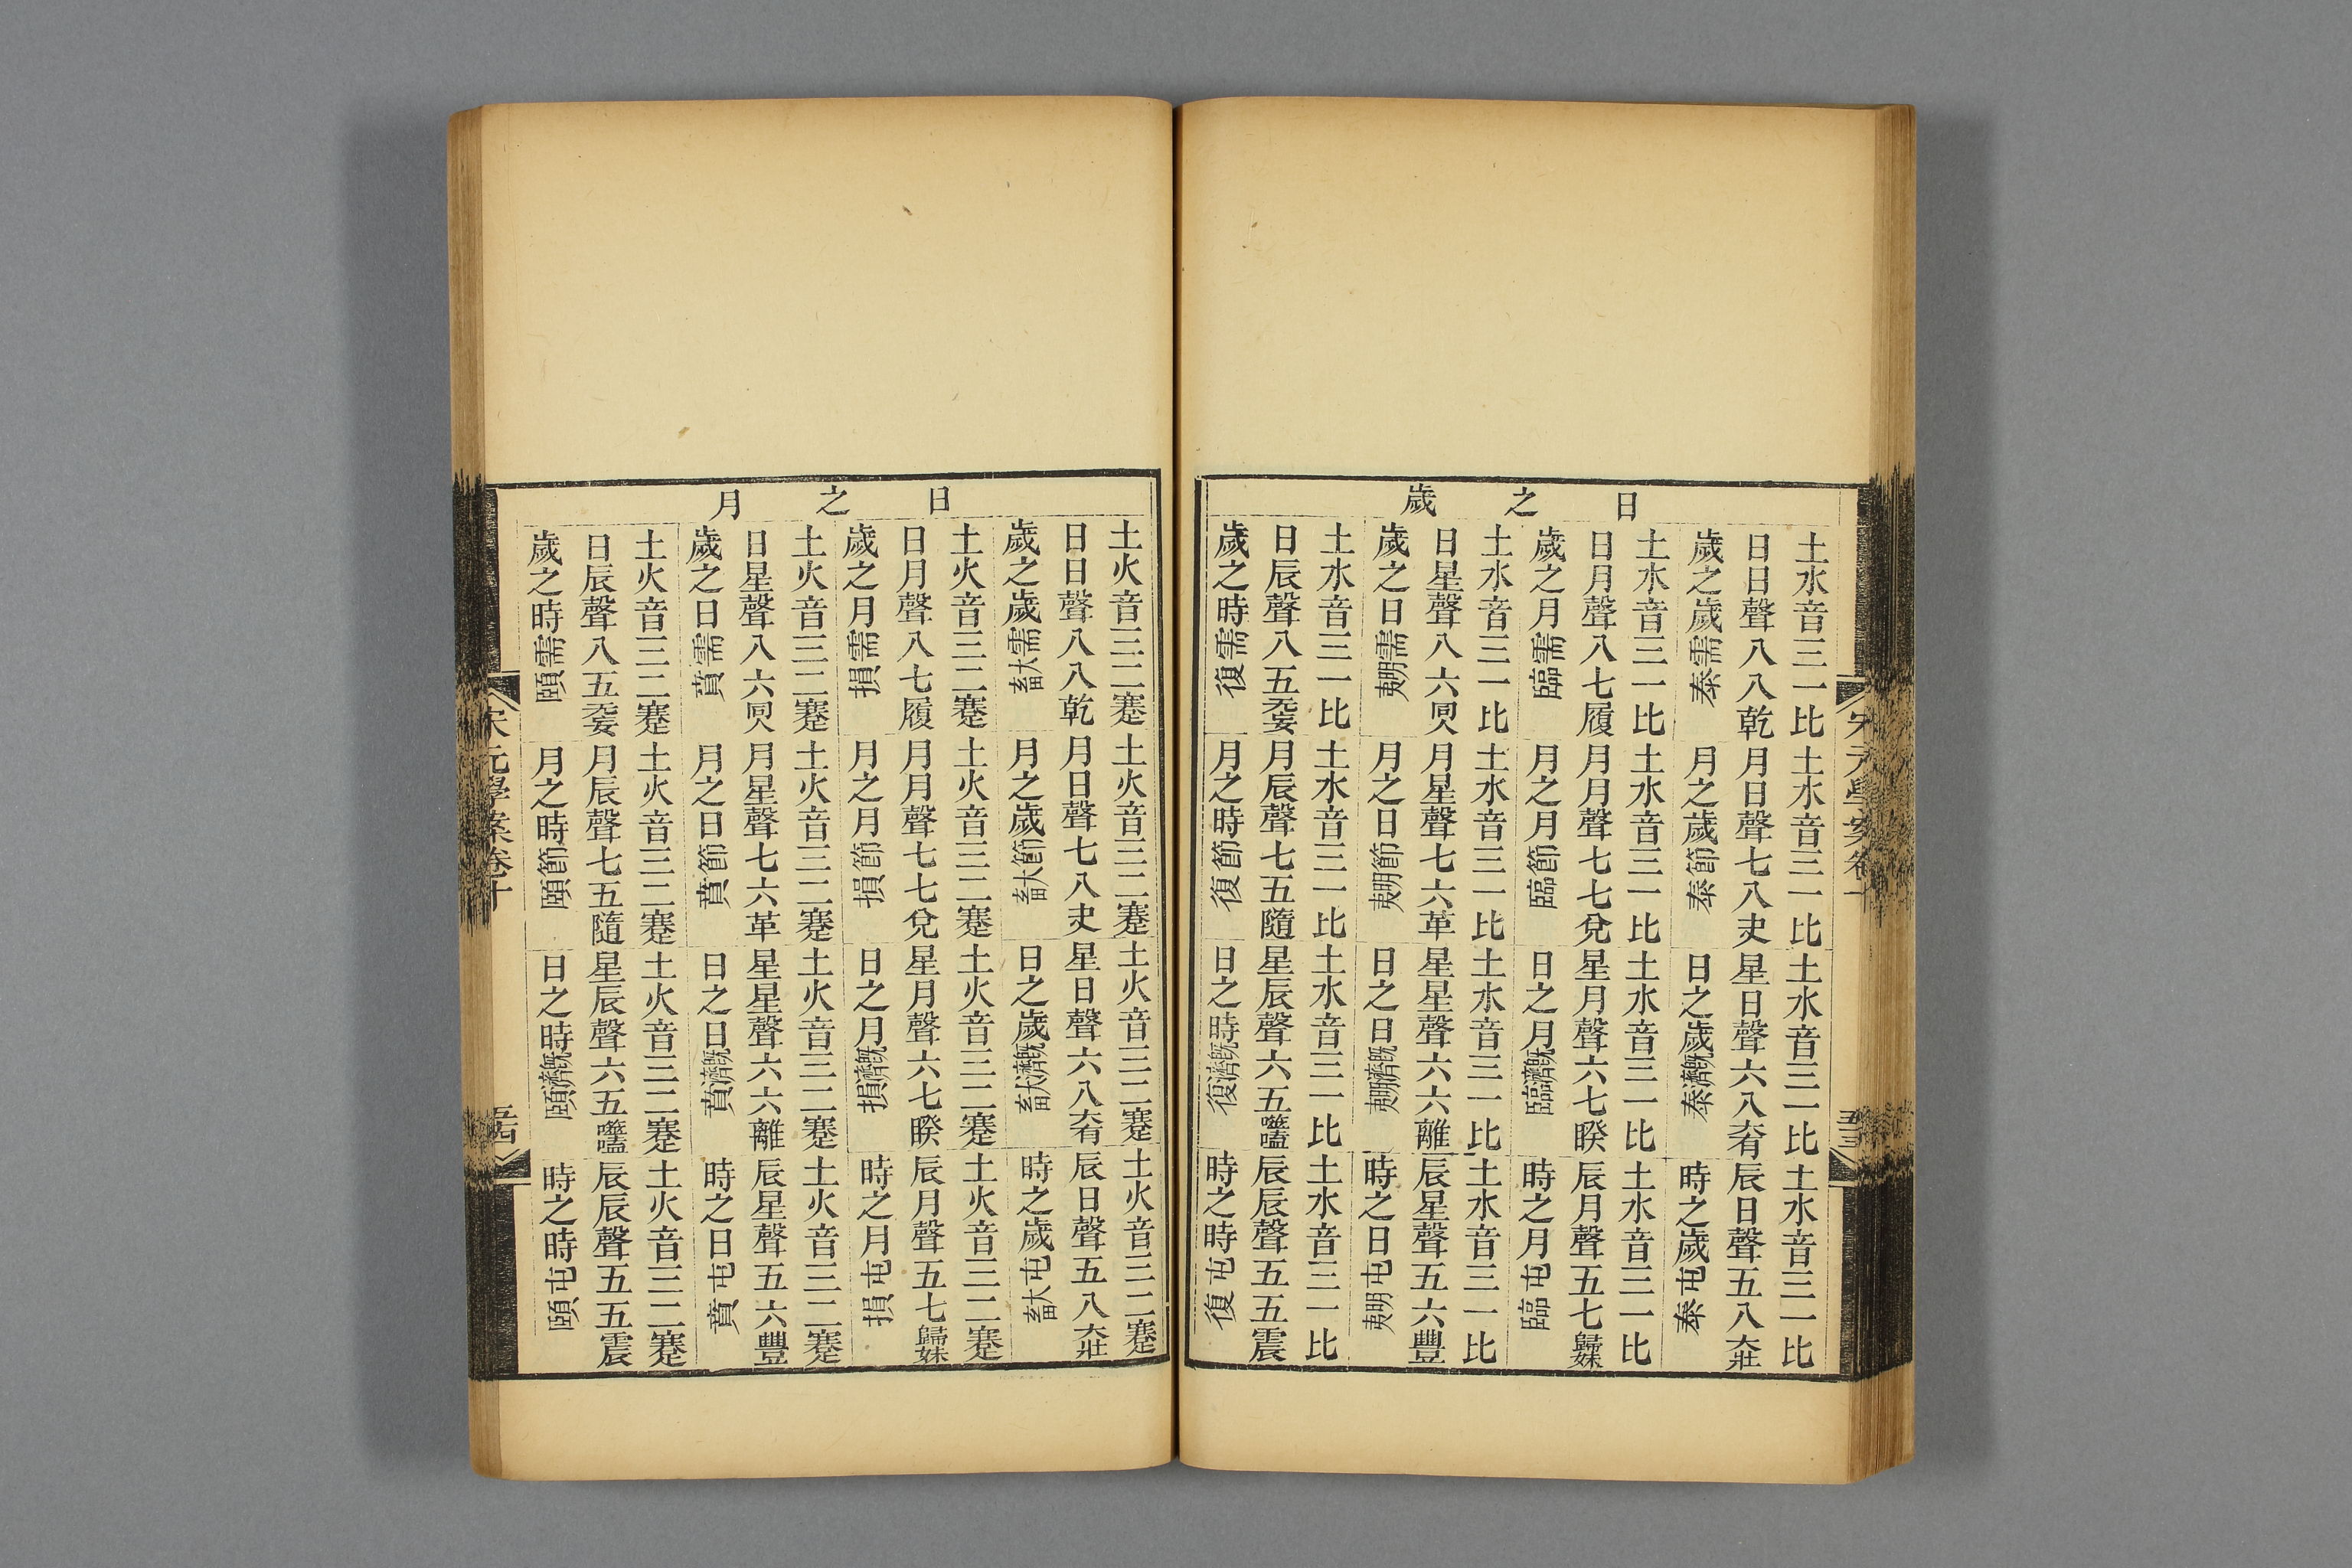 宋元學案卷十
五十三
日之歲
土水音三一比土水音三一比土水音三一比土水音三一比
日日聲八八乾月日聲七八夬星日聲六八大有辰日聲五八大壯
歲之歲需泰月之歲節泰日之歲既濟泰時之歲屯泰
土水音三一比土水音三一比土水音三一比土水音三一比
日月聲八七履月月聲七七兌星月聲六七睽辰月聲五七歸妹
歲之月需臨月之月節臨日之月既濟臨時之月屯臨
土水音三一比土水音三一比土水音三一比土水音三一比
日星聲八六同人月星聲七六革星星聲六六離辰星聲五六豐
歲之日需明夷月之日節明夷日之日既濟明夷時之日屯明夷
土水音三一比土水音三一比土水音三一比土水音三一比
日辰聲八五无妄月辰聲七五隨星辰聲六五噬嗑辰辰聲五五震
歲之時需復月之時節復日之時既濟復時之時屯復
日之月
土火音三二蹇土火音三二蹇土火音三二蹇土火音三二蹇
日日聲八八乾月日聲七八夬星日聲六八大有辰日聲五八大壯
歲之歲需大畜月之歲節大畜日之歲既濟大畜時之歲屯大畜
土火音三二蹇土火音三二蹇土火音三二蹇土火音三二蹇
日月聲八七履月月聲七七兌星月聲六七睽辰月聲五七歸妹
歲之月需損月之月節損日之月既濟損時之月屯損
土火音三二蹇土火音三二蹇土火音三二蹇土火音三二蹇
日星聲八六同人月星聲七六革星星聲六六離辰星聲五六豐
歲之日需賁月之日節賁日之日既濟賁時之日屯賁
土火音三二蹇土火音三二蹇土火音三二蹇土火音三二蹇
日辰聲八五无妄月辰聲七五隨星辰聲六五噬嗑辰辰聲五五震
歲之時需頤月之時節頤日之時既濟頤時之時屯頤
宋元學案卷十
五十四